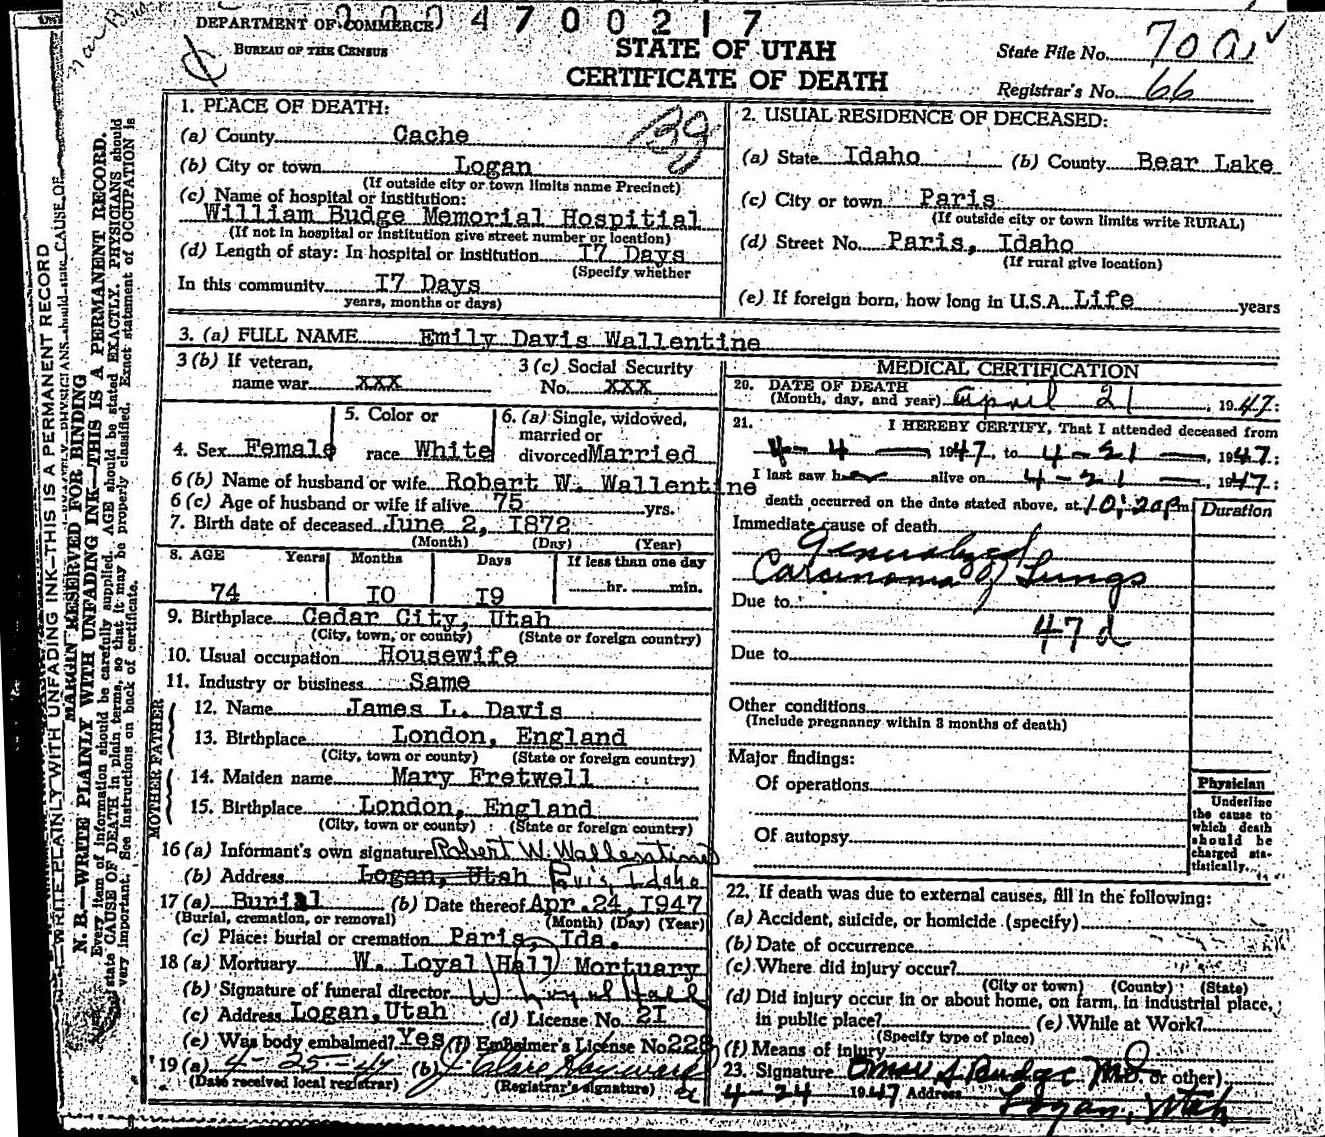 DEPARTMENT OF COMMERCE
BUREAU OF THE CENSUS
4700217
STATE OF UTAH
CERTIFICATE OF DEATH
State File No.
Registrar's No. 66
1. PLACE OF DEATH:
(a) County Cache
(b) City or town Logan
(If outside city or town limits name Precinct)
(c) Name of hospital or institution:
William Budge Memorial Hospitial
(If not in hospital or institution give street number or location)
(d) Length of stay: In hospital or institution I7 Days
(Specify whether
In this community I7 Days
years, months or days)
2. USUAL RESIDENCE OF DECEASED:
(a) State Idaho (b) County Bear Lake
(c) City or town Paris
(If outside city or town limits write RURAL)
(d) Street No. Paris, Idaho
(If rural give location)
(e) If foreign born, how long in U.S.A. Life years
3. (a) FULL NAME Emily Davis Wallentine
3 (b) If veteran,
name war xxx
3 (c) Social Security
No. xxx
4. Sex Female
5. Color or
race White
6. (a) Single, widowed,
married or
divorced Married
6 (b) Name of husband or wife Robert W. Wallentine
6 (c) Age of husband or wife if alive 75 yrs.
7. Birth date of deceased June 2, I872
(Month) (Day) (Year)
8. AGE Years Months Days If less than one day
74 IO I9 hr. min.
9. Birthplace Cedar City, Utah
(City, town, or county) (State or foreign country)
10. Usual occupation Housewife
11. Industry or business Same
FATHER
12. Name James L. Davis
13. Birthplace London, England
(City, town or county) (State or foreign country)
MOTHER
14. Maiden name Mary Fretwell
15. Birthplace London, England
(City, town or county) (State or foreign country)
16 (a) Informant's own signature Robert W. Wallentine
(b) Address Logan, Utah Paris, Idaho
17 (a) Burial (b) Date thereof Apr. 24, I947
(Burial, cremation, or removal) (Month) (Day) (Year)
(c) Place: burial or cremation Paris, Ida.
18 (a) Mortuary W. Loyal Hall Mortuary
(b) Signature of funeral director W. Loyal Hall
(c) Address Logan, Utah (d) License No. 2I
(e) Was body embalmed? Yes (f) Embalmer's License No. 228
19 (a) 4-25-47 (b)
(Date received local registrar) (Registrar's signature)
MEDICAL CERTIFICATION
20. DATE OF DEATH
(Month, day, and year) April 21, 1947:
21. I HEREBY CERTIFY, That I attended deceased from
4-4 1947, to 4-21, 1947;
I last saw her alive on 4-21, 1947;
death occurred on the date stated above, at 10:20 p m.
Duration
Immediate cause of death
Generalized
Carcinoma of Lungs
Due to
47d
Due to
Other conditions
(Include pregnancy within 3 months of death)
Major findings:
Of operations
Of autopsy
Physician
Underline
the cause to
which death
should be
charged sta-
tistically.
22. If death was due to external causes, fill in the following:
(a) Accident, suicide, or homicide (specify)
(b) Date of occurrence
(c) Where did injury occur?
(City or town) (County) (State)
(d) Did injury occur in or about home, on farm, in industrial place,
in public place? (e) While at Work?
(Specify type of place)
(f) Means of injury
23. Signature Omar S. Budge M.D. or other)
4-24 1947 Address Logan, Utah
WRITE PLAINLY WITH UNFADING INK—THIS IS A PERMANENT RECORD
MARGIN RESERVED FOR BINDING
N. B.—WRITE PLAINLY WITH UNFADING INK—THIS IS A PERMANENT RECORD.
Every item of information should be carefully supplied. AGE should be stated EXACTLY. PHYSICIANS should
state CAUSE OF DEATH in plain terms, so that it may be properly classified. Exact statement of OCCUPATION is
very important. See instructions on back of certificate.